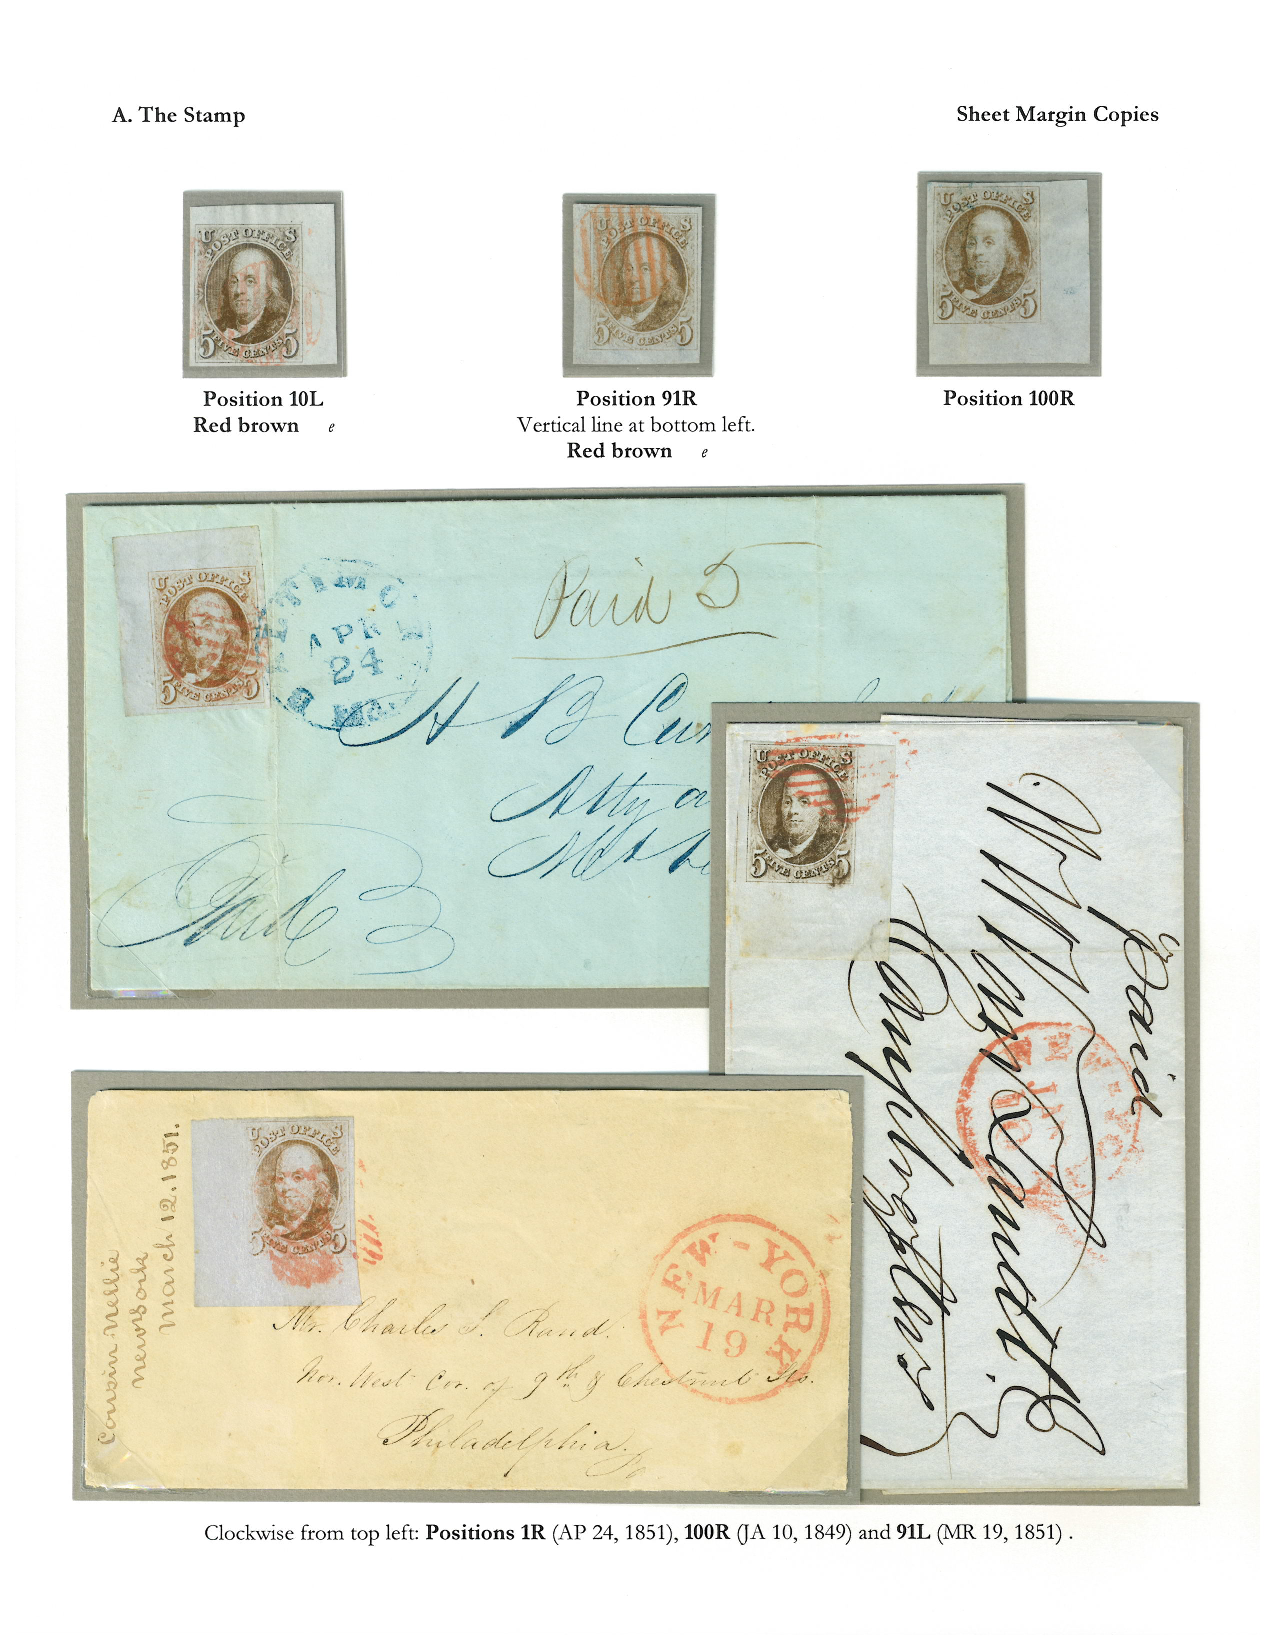 A. The Stamp
Sheet Margin Copies
U S
POST OFFICE
5 FIVE CENTS 5
U S
POST OFFICE
5 FIVE CENTS 5
U S
POST OFFICE
5 FIVE CENTS 5
Position 10L
Red brown e
Position 91R
Vertical line at bottom left.
Red brown e
Position 100R
U S
POST OFFICE
5 FIVE CENTS 5
APR
24
Md.
Paid 5
H B
Atty
Paid 3
U S
POST OFFICE
5 FIVE CENTS 5
Paid
NEW-YORK
10
U S
POST OFFICE
5 FIVE CENTS 5
Cousin Nellie
New York
March 12. 1851.
NEW-YORK
MAR
19
Mr. Charles S. Rand.
Nor. West Cor. of 9th & Chestnut Sts.
Philadelphia.
Clockwise from top left: Positions 1R (AP 24, 1851), 100R (JA 10, 1849) and 91L (MR 19, 1851) .